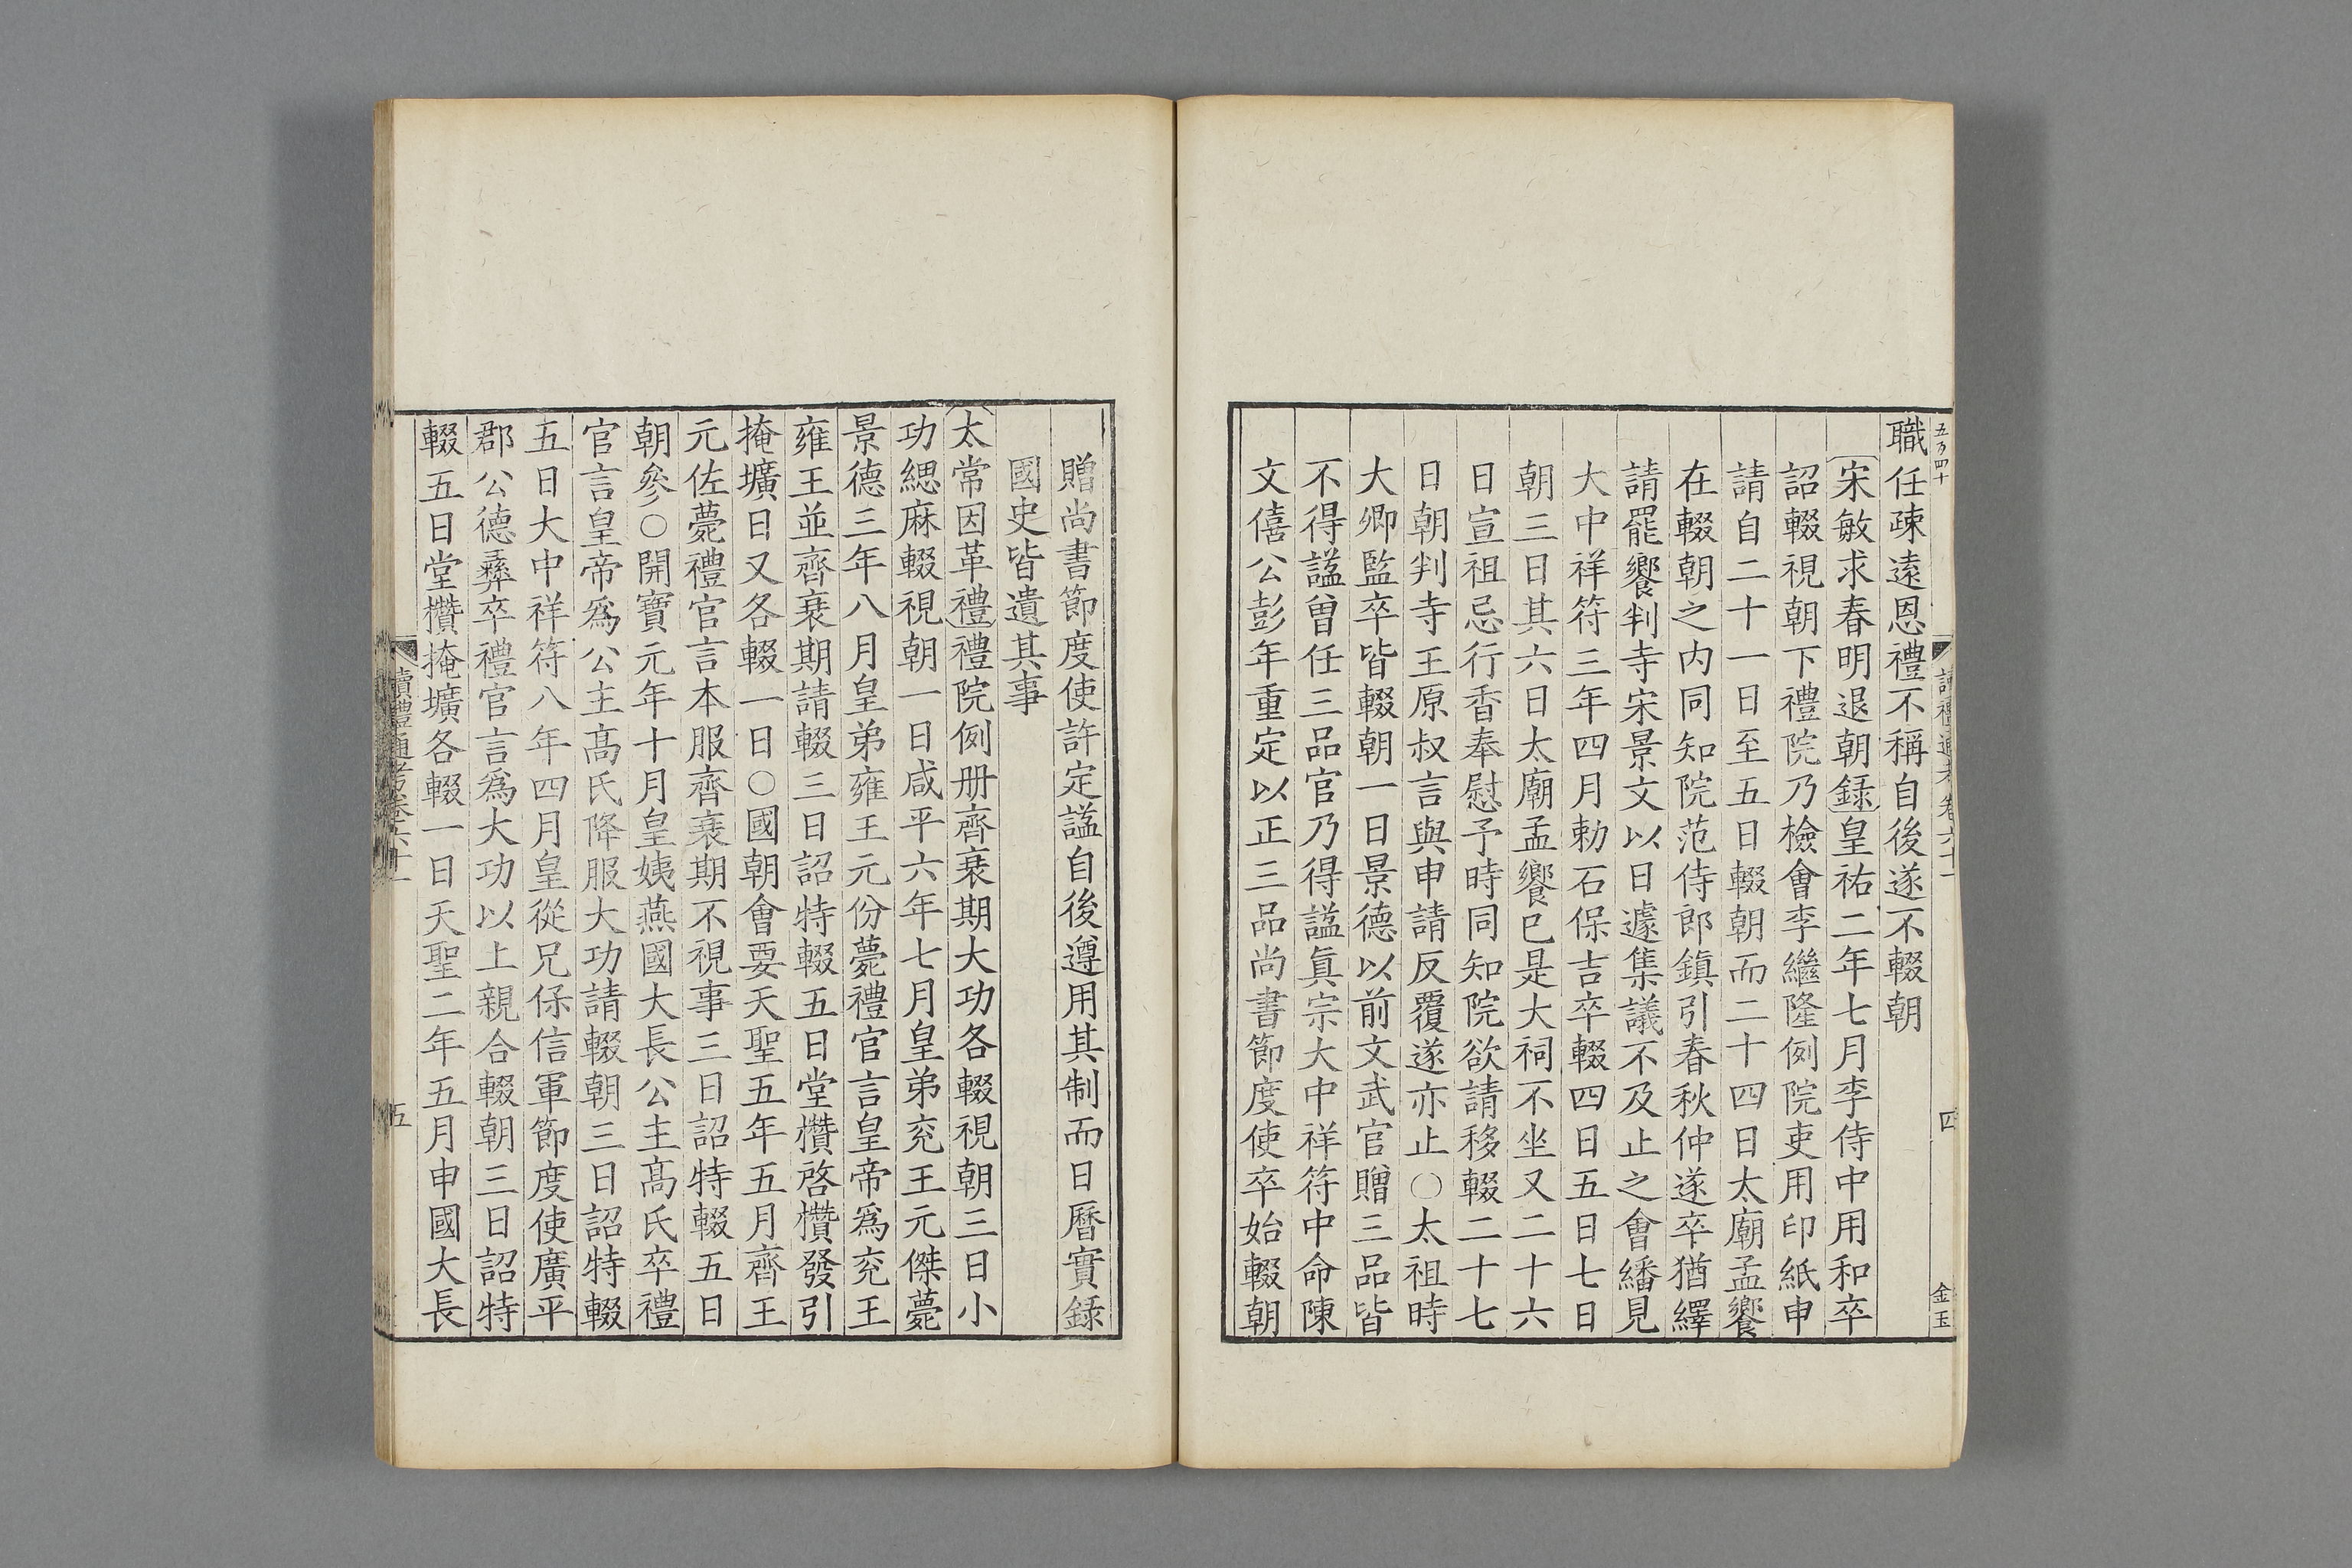 五万四十
讀禮通考卷六十一
四
金玉
職任疎遠恩禮不稱自後遂不輟朝
宋敏求春明退朝錄皇祐二年七月李侍中用和卒
詔輟視朝下禮院乃檢會李繼隆例院吏用印紙申
請自二十一日至五日輟朝而二十四日太廟孟饗
在輟朝之內同知院范侍郎鎮引春秋仲遂卒猶繹
請罷饗判寺宋景文以日遽集議不及止之會繙見
大中祥符三年四月勅石保吉卒輟四日五日七日
朝三日其六日太廟孟饗已是大祠不坐又二十六
日宣祖忌行香奉慰予時同知院欲請移輟二十七
日朝判寺王原叔言與申請反覆遂亦止○太祖時
大卿監卒皆輟朝一日景德以前文武官贈三品皆
不得謚曾任三品官乃得謚眞宗大中祥符中命陳
文僖公彭年重定以正三品尚書節度使卒始輟朝
贈尚書節度使許定謚自後遵用其制而日曆實錄
國史皆遺其事
太常因革禮禮院例册齊衰期大功各輟視朝三日小
功緦麻輟視朝一日咸平六年七月皇弟兗王元傑薨
景德三年八月皇弟雍王元份薨禮官言皇帝爲兗王
雍王並齊衰期請輟三日詔特輟五日堂欑啓欑發引
掩壙日又各輟一日○國朝會要天聖五年五月齊王
元佐薨禮官言本服齊衰期不視事三日詔特輟五日
朝參○開寶元年十月皇姨燕國大長公主髙氏卒禮
官言皇帝爲公主髙氏降服大功請輟朝三日詔特輟
五日大中祥符八年四月皇從兄保信軍節度使廣平
郡公德彝卒禮官言爲大功以上親合輟朝三日詔特
輟五日堂欑掩壙各輟一日天聖二年五月申國大長
讀禮通考卷六十一
五